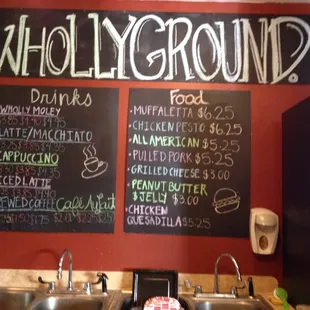 WHOLLYGROUND.
Drinks
WHOLLY MOLEY
LATTE/MACCHIATO
CAPPUCCINO
ICED LATTE
Café Au Lait
Food
MUFFALETTA $6.25
CHICKEN PESTO $6.25
ALL AMERICAN $5.25
PULLED PORK $5.25
GRILLED CHEESE $3.00
PEANUT BUTTER
& JELLY $3.00
CHICKEN
QUESADILLA $5.25